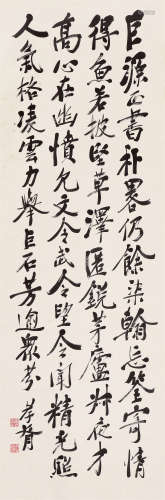 巨源正書朴畧仍餘染翰忘筌寄情
得魚若披堅草澤匿銳茅廬叔夜才
高心在幽憤允文令武令望令聞精光照
人氣格凌雲力舉巨石芳逾衆芬 孝胥